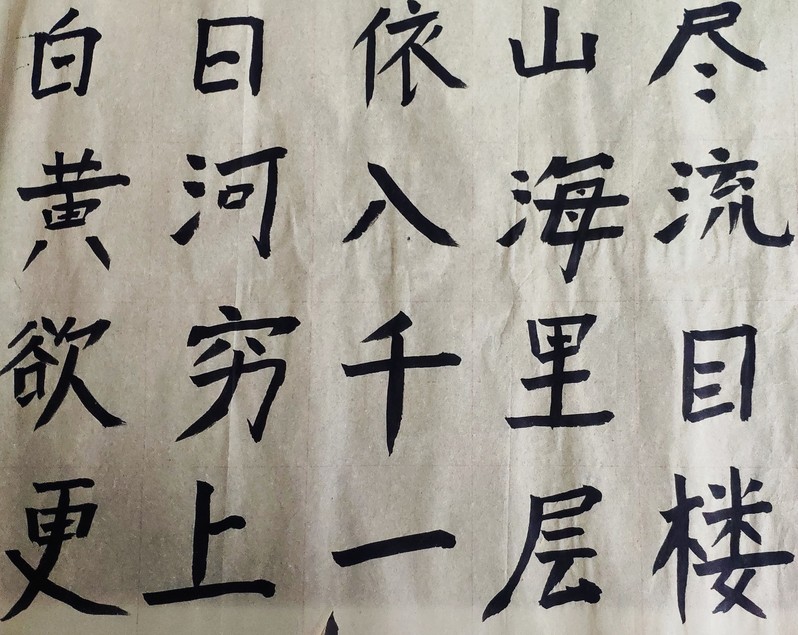 白日依山尽
黄河八海流
欲穷千里目
更上一层楼